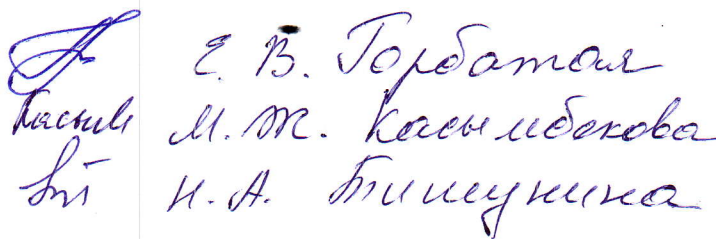 Е. В. Горбатая
Касым М. Ж. Касымбекова
Н. А. Тишунина